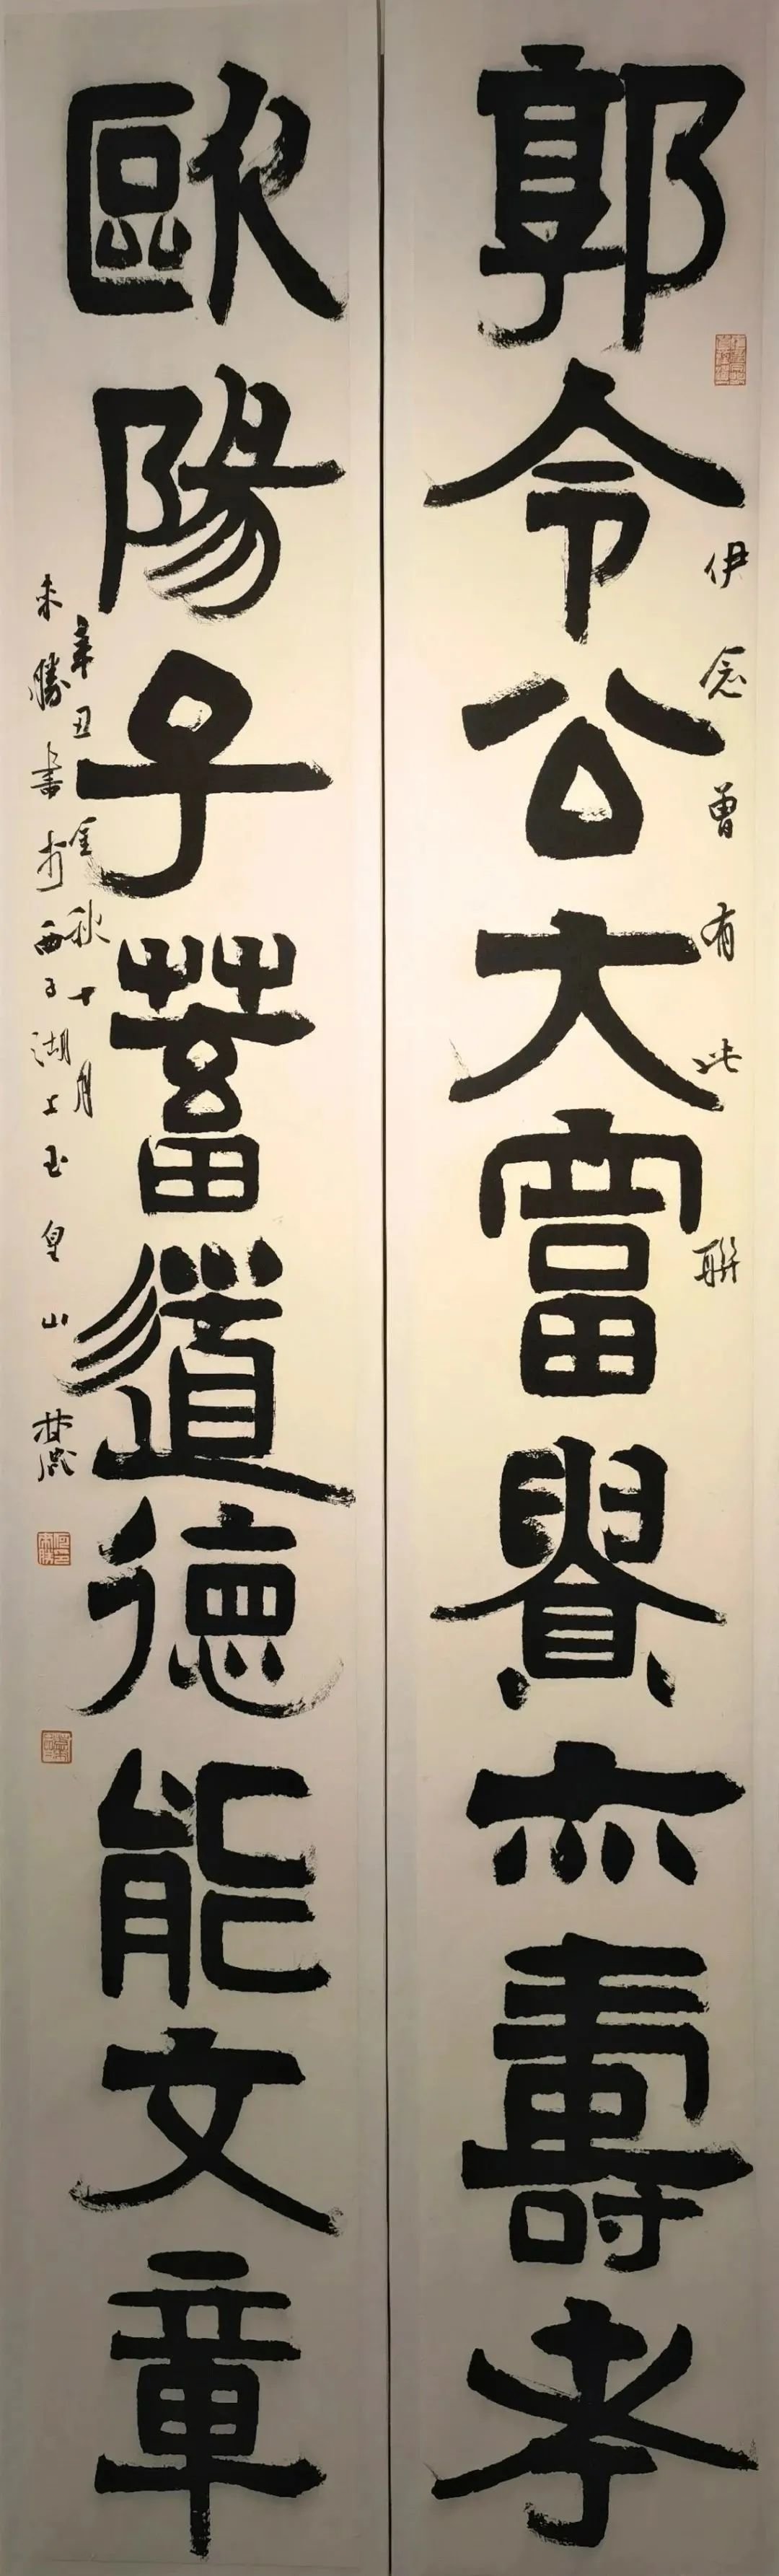 郭令公大富貴亦壽考
歐陽子蓄道德能文章
伊念曾有此聯
辛丑金秋十月
来勝書於西子湖上玉皇山麓